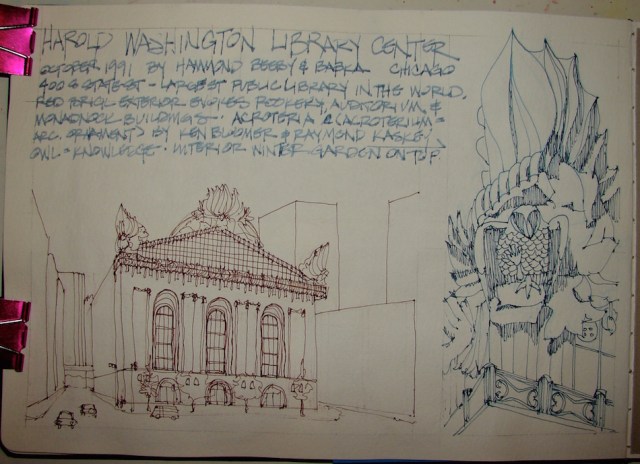 HAROLD WASHINGTON LIBRARY CENTER
OCTOBER 1991 BY HAMMOND BEEBY & BABKA CHICAGO
400 S STATE ST - LARGEST PUBLIC LIBRARY IN THE WORLD.
RED BRICK EXTERIOR EVOKES ROOKERY, AUDITORIUM &
MONADNOCK BUILDINGS. ACROTERIA &(ACROTERIUM =
ARC. ORNAMENT) BY KEN BLOOMER & RAYMOND KASKEY
OWL = KNOWLEDGE. INTERIOR WINTER GARDEN ON TOP.